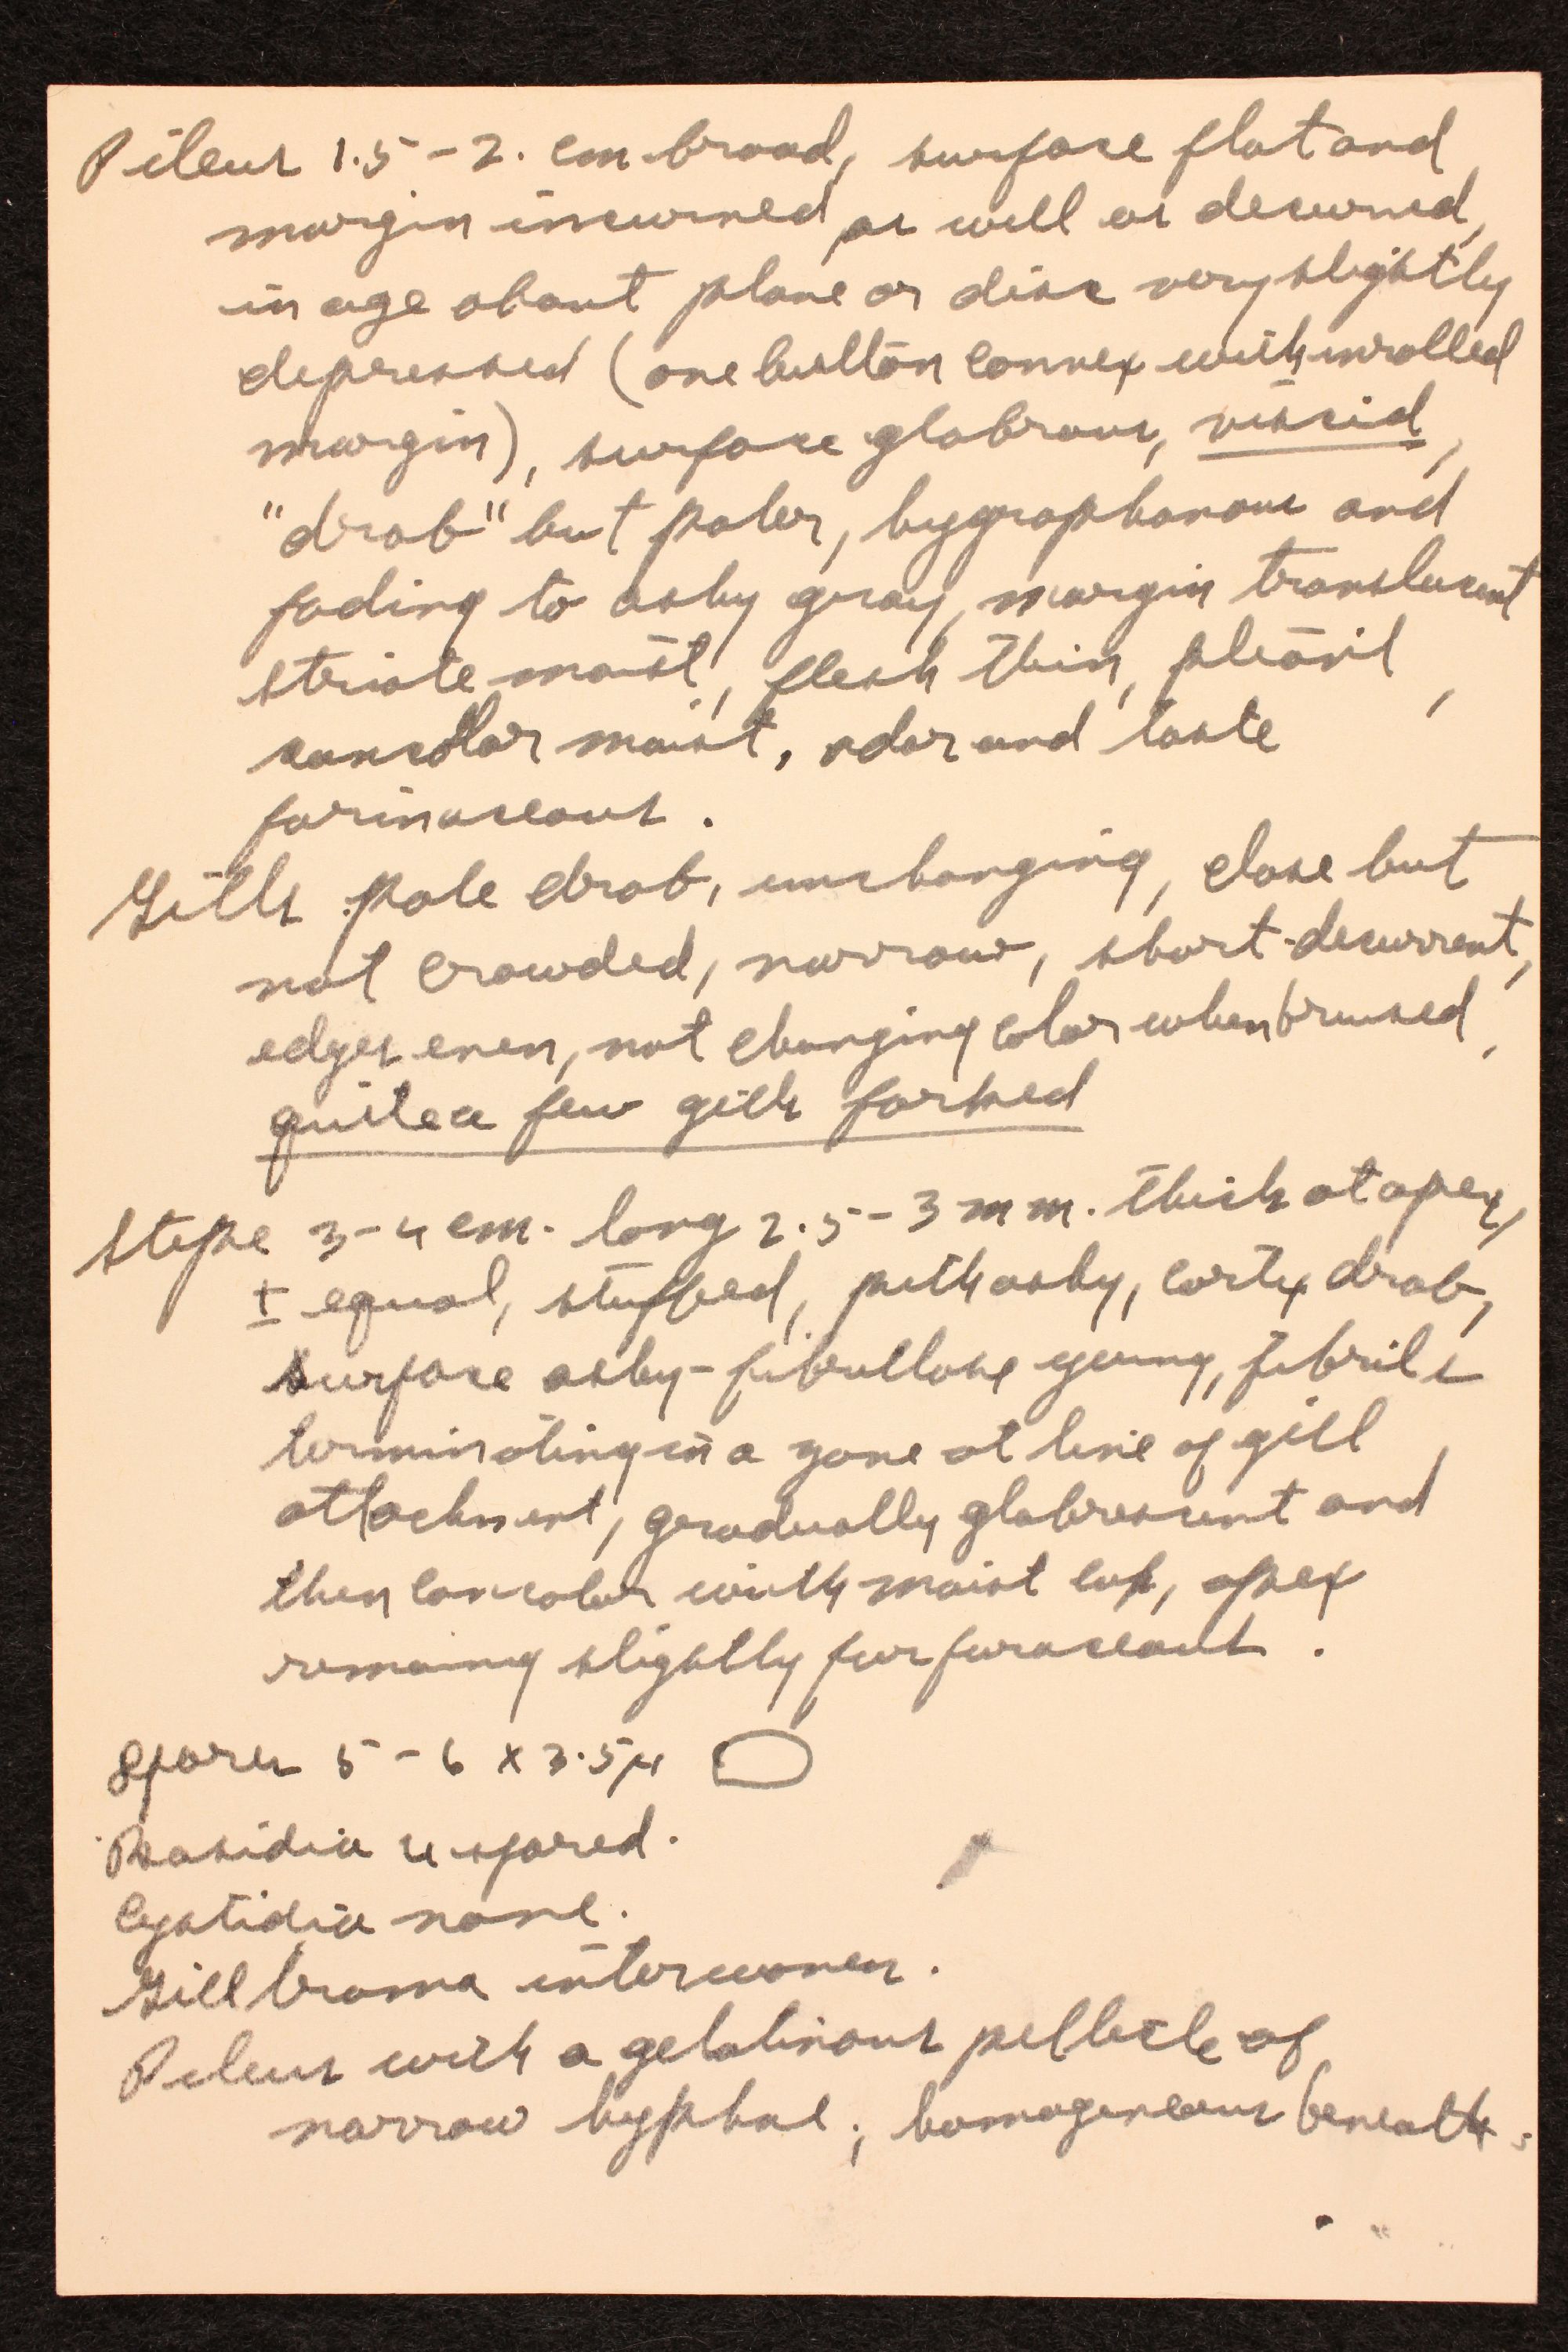 Pileus 1.5 - 2. cm broad, surface flat and
margin incurved as well as decurved,
in age about plane or disc very slightly
depressed (one button convex with inrolled
margin), surface glabrous, viscid,
"drab" but paler, hygrophanous and
fading to ashy gray, margin translucent
striate moist, flesh thin, pliant,
concolor moist, odor and taste
farinaceous.
Gills pale drab, unchanging, close but
not crowded, narrow, short-decurrent,
edges even, not changing color when bruised,
quite a few gills forked
Stipe 3-4 cm. long 2.5-3 mm. thick at apex,
± equal, stuffed, pith ashy, cortex drab,
surface ashy-fibrillose young, fibrils
terminating in a zone at line of gill
attachment, gradually glabrescent and
then concolor with moist cap, apex
remaining slightly furfuraceous.
Spores 5-6 x 3.5µ
Basidia 4 spored.
Cystidia none.
Gill trama interwoven.
Pileus with a gelatinous pellicle of
narrow hyphae; homogeneous beneath.